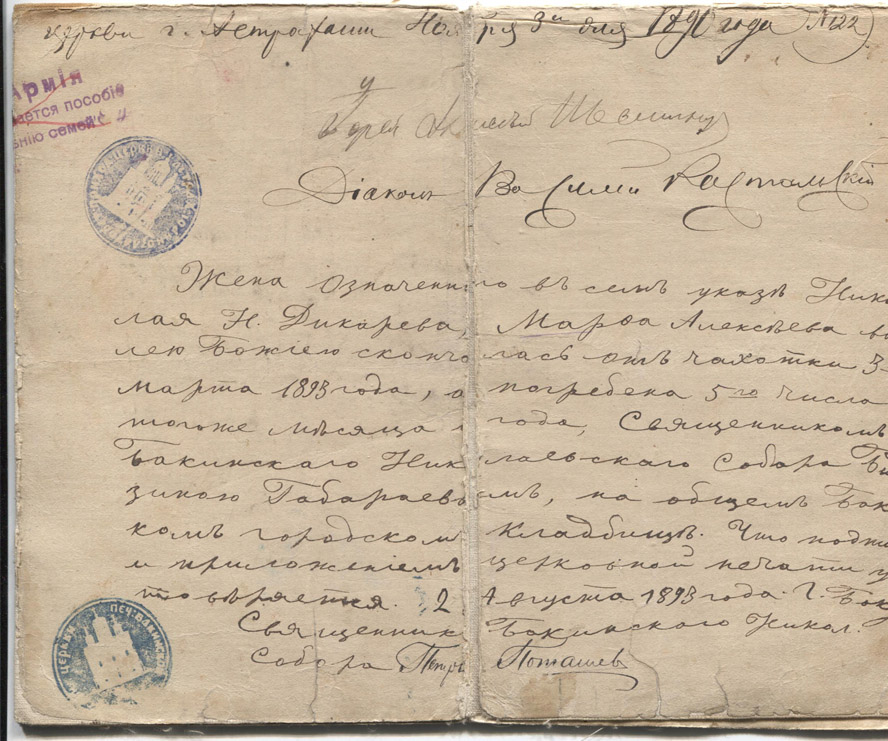 церкви г. Астрахани Ноября 3 дня 1890 года № 122
Армія
ается пособіе
нію семей
Іерей Алексѣй
Діаконъ Василій Кастальскій
Жена означеннаго въ семъ указѣ Нико
лая Н. Дикарева, Марѳа Алексѣева во
лею Божіею скончалась отъ чахотки 3-
марта 1893 года, а погребена 5го числа
тогоже мѣсяца и года, Священникомъ
Бакинскаго Николаевскаго Собора
зиною Габараевымъ, на общемъ Бак
комъ городскомъ кладбищѣ. Что подпи
и приложеніемъ церковной печати у
товѣряется. 2 Августа 1893 года. Г. Бак
Священникъ Бакинскаго Никол.
Собора Петръ Поташев